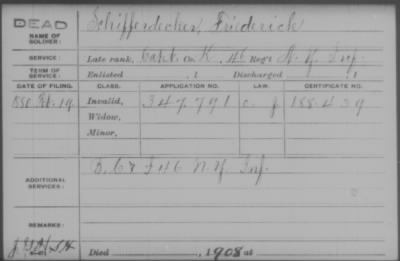 DEAD
Schifferdecker, Friederick
NAME OF SOLDIER:
SERVICE: Late rank, Capt. Co. K, 46 Reg't N. Y. Inf.
TERM OF SERVICE: Enlisted , 1 Discharged , 1
DATE OF FILING. CLASS. APPLICATION NO. LAW. CERTIFICATE NO.
1880 Feb. 19 Invalid, 347.791 188.439
Widow,
Minor,
ADDITIONAL SERVICES: B. & F 46 N.Y. Inf.
REMARKS:
Died , 1908 at